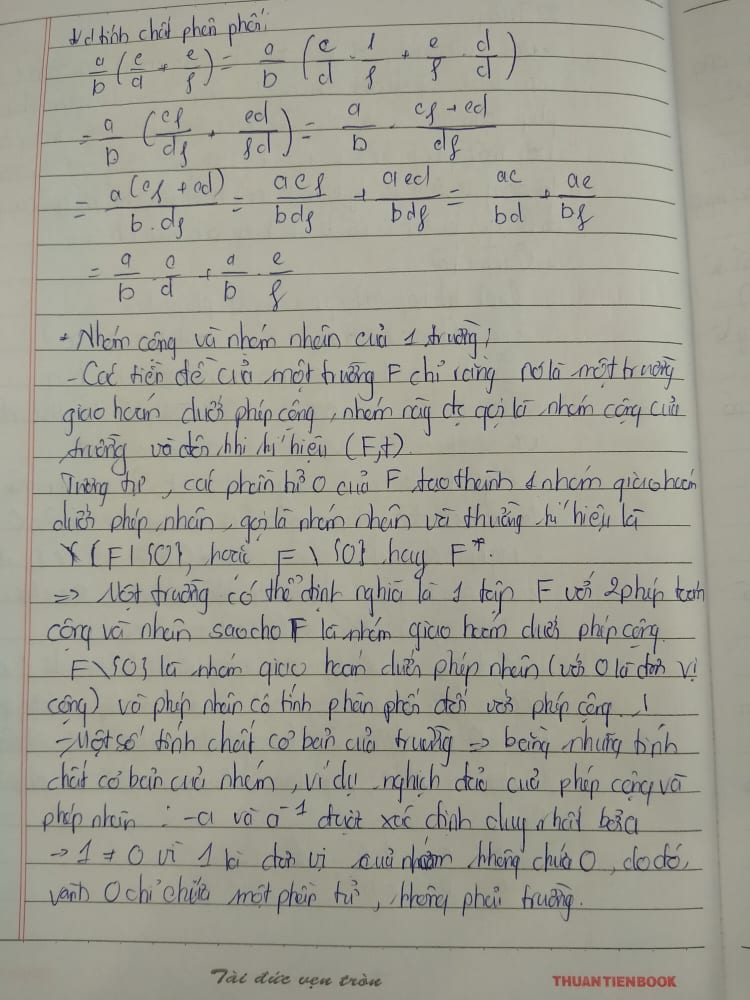 Vd tính chất phân phối:
a/b (c/d + e/f) = a/b (c/d · f/f + e/f · d/d)
= a/b (cf/df + ed/fd) = a/b · cf + ed/df
= a(cf + ed)/b.df = acf/bdf + aed/bdf = ac/bd + ae/bf
= a/b · c/d + a/b · e/f
+ Nhóm cộng và nhóm nhân của 1 trường:
- Các tiên đề của một trường F chỉ rằng nó là một trường
giao hoán dưới phép cộng, nhóm này đc gọi là nhóm cộng của
trường và đôi khi kí hiệu (F,+).
Tương tự, các phần tử 0 của F tạo thành 1 nhóm giao hoán
dưới phép nhân, gọi là nhóm nhân và thường kí hiệu là
(F\{0}, hoặc F \ {0} hay F*.
=> Một trường có thể định nghĩa là 1 tập F với 2 phép toán
cộng và nhân sao cho F là nhóm giao hoán dưới phép cộng
F\{0} là nhóm giao hoán dưới phép nhân (với 0 là đơn vị
cộng) và phép nhân có tính phân phối đối với phép cộng.
- Một số tính chất cơ bản của trường => bằng những tính
chất cơ bản của nhóm, ví dụ nghịch đảo của phép cộng và
phép nhân : -a và a⁻¹ được xác định duy nhất bởi a
-> 1 ≠ 0 vì 1 là đơn vị của nhóm không chứa 0, do đó,
vành 0 chỉ chứa một phần tử, không phải trường.
Tài đức vẹn tròn
THUANTIENBOOK